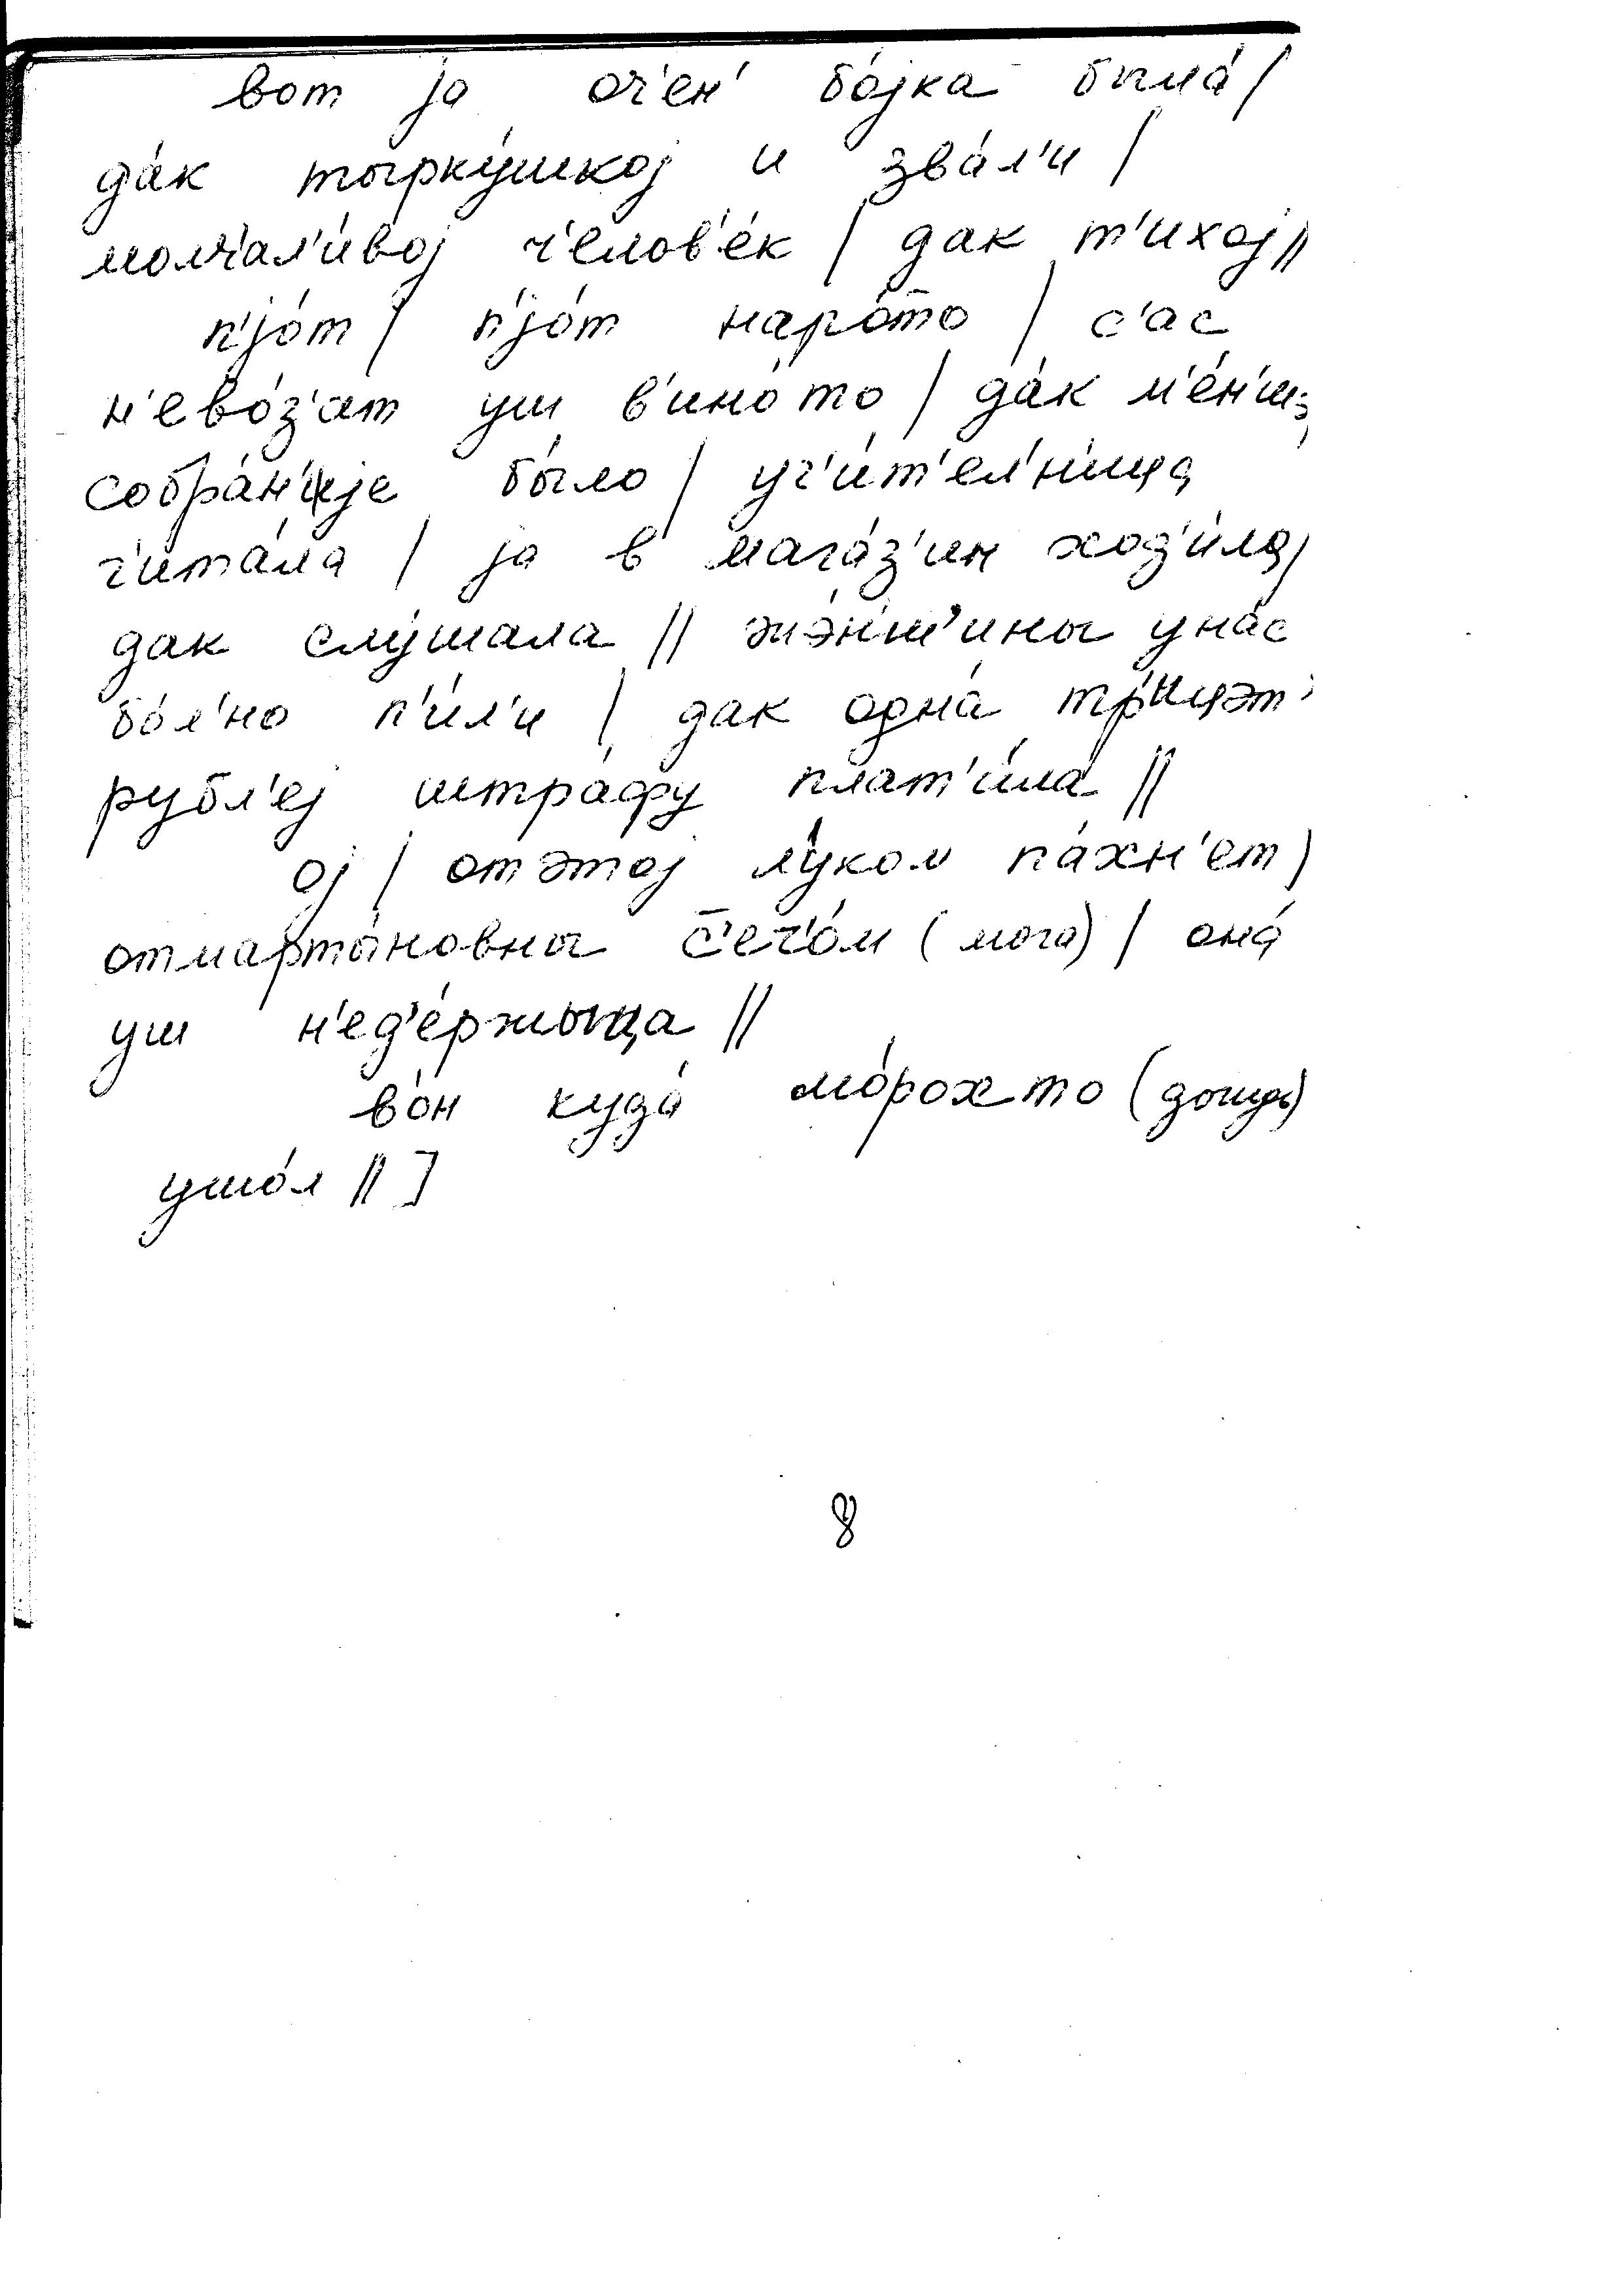 вот ja оч'ен' бо́jка была́ /
да́к тырку́шкоj и зва́л'и /
молч'ал'и́воj ч'елов'е́к / дак т'ихоj //
п'jо́т / п'jо́т наро́т̄о / с'ас
н'ево́з'ат уш в'ино́то / да́к м'е́н'ш
собра́н'иjе бы́ло / уч'и́т'ел'н'ица
ч'ита́ла / ja в мага́з'ин ход'и́ла /
дак слу́шала // жэ́нш'ины уна́с
бо́л'но п'и́л'и / дак одна́ тр'и́цэт'
рубл'еj штра́фу плат'и́ла //
оj / отэтоj лу́ком па́хн'ет /
отмарты́новны с̄'еч'о́м (мога) / она́
уш н'ед'е́ржыца //
во́н куда́ мо́рохто (дождь)
ушо́л // ]
8